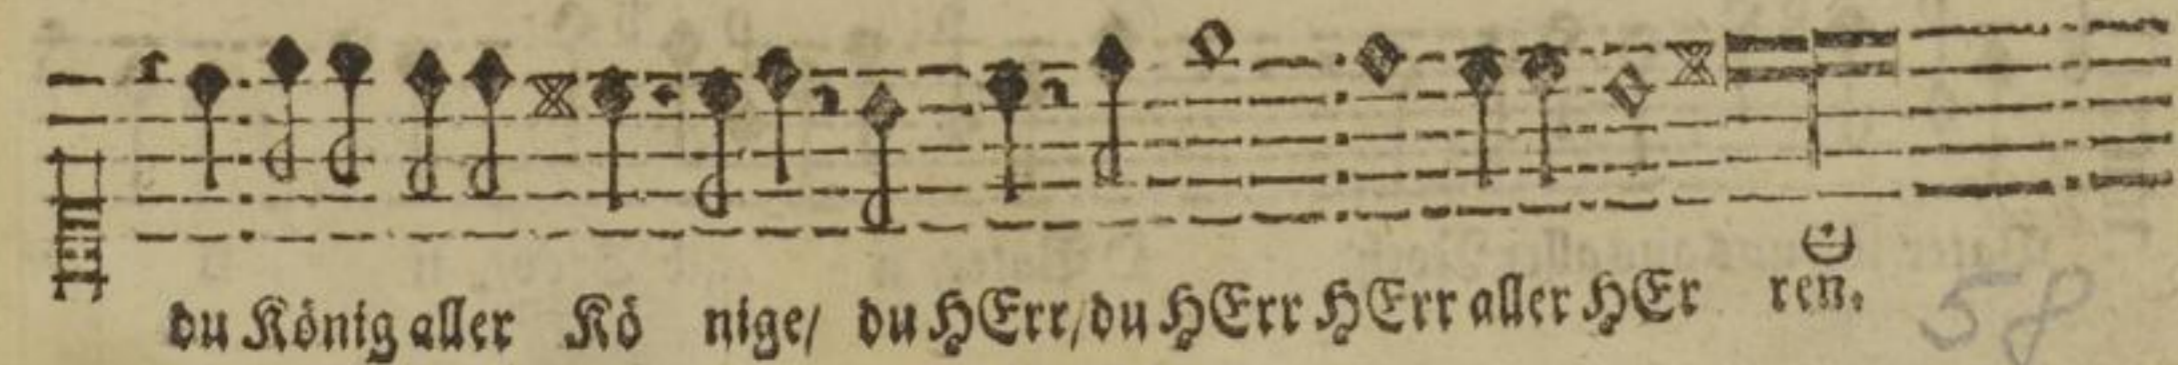 du König aller Kö nige/ du HErr/du HErr HErr aller HEr ren.
58